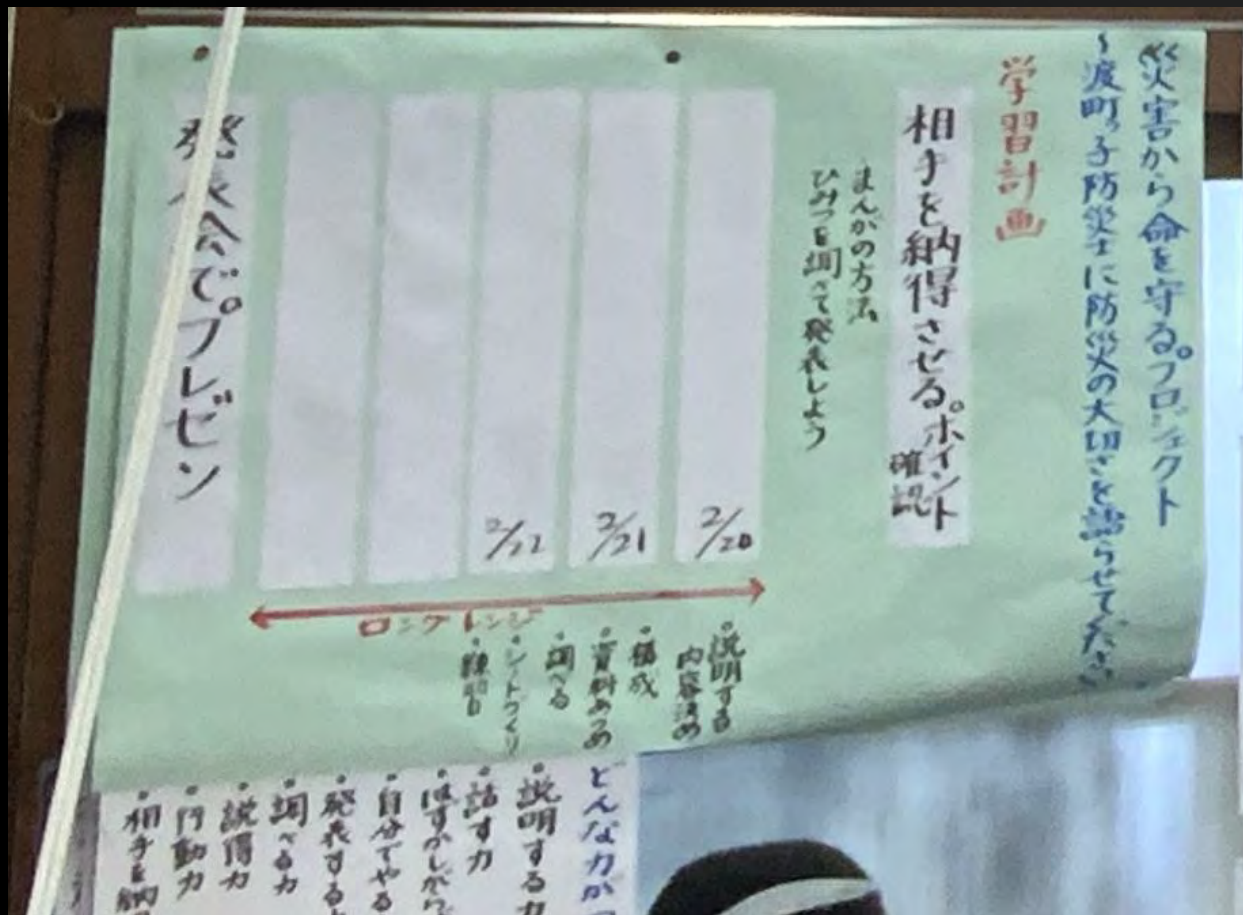 災害から命を守る。プロジェクト
〜渡町っ子防災士に防災の大切さを語らせてください
学習計画
相手を納得させる。ポイント
確認
まんがの方法
ひみつを調べて発表しよう
2/20
2/21
2/22
発表会でプレゼン
ロングレンジ
・説明する
内容決め
・構成
・資料あつめ
・調べる
・シートづくり
・練習
どんな力が
・説明する力
・話す力
・はずかしがら
・自分でやる
・発表する
・調べる力
・説得力
・行動力
・相手を納